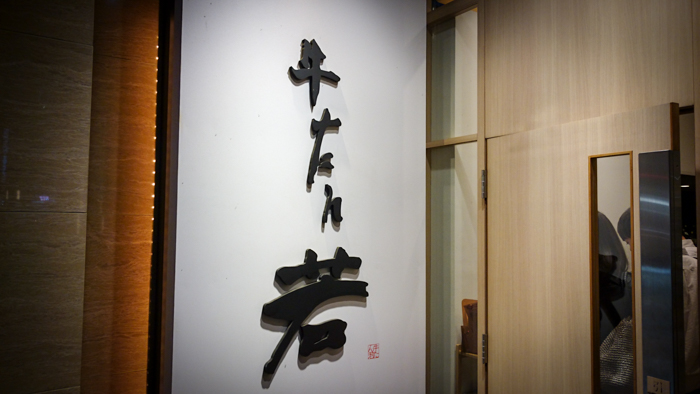 牛たん
若